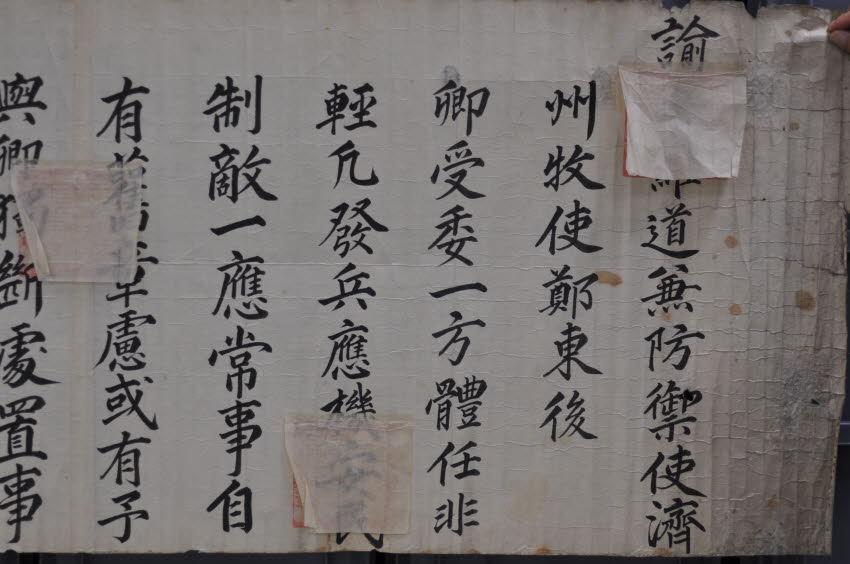 諭道兼防禦使濟
州牧使鄭東後
卿受委一方體任非
輕凡發兵應機安民
制敵一應常事自
有舊章慮或有予
與卿獨斷處置事